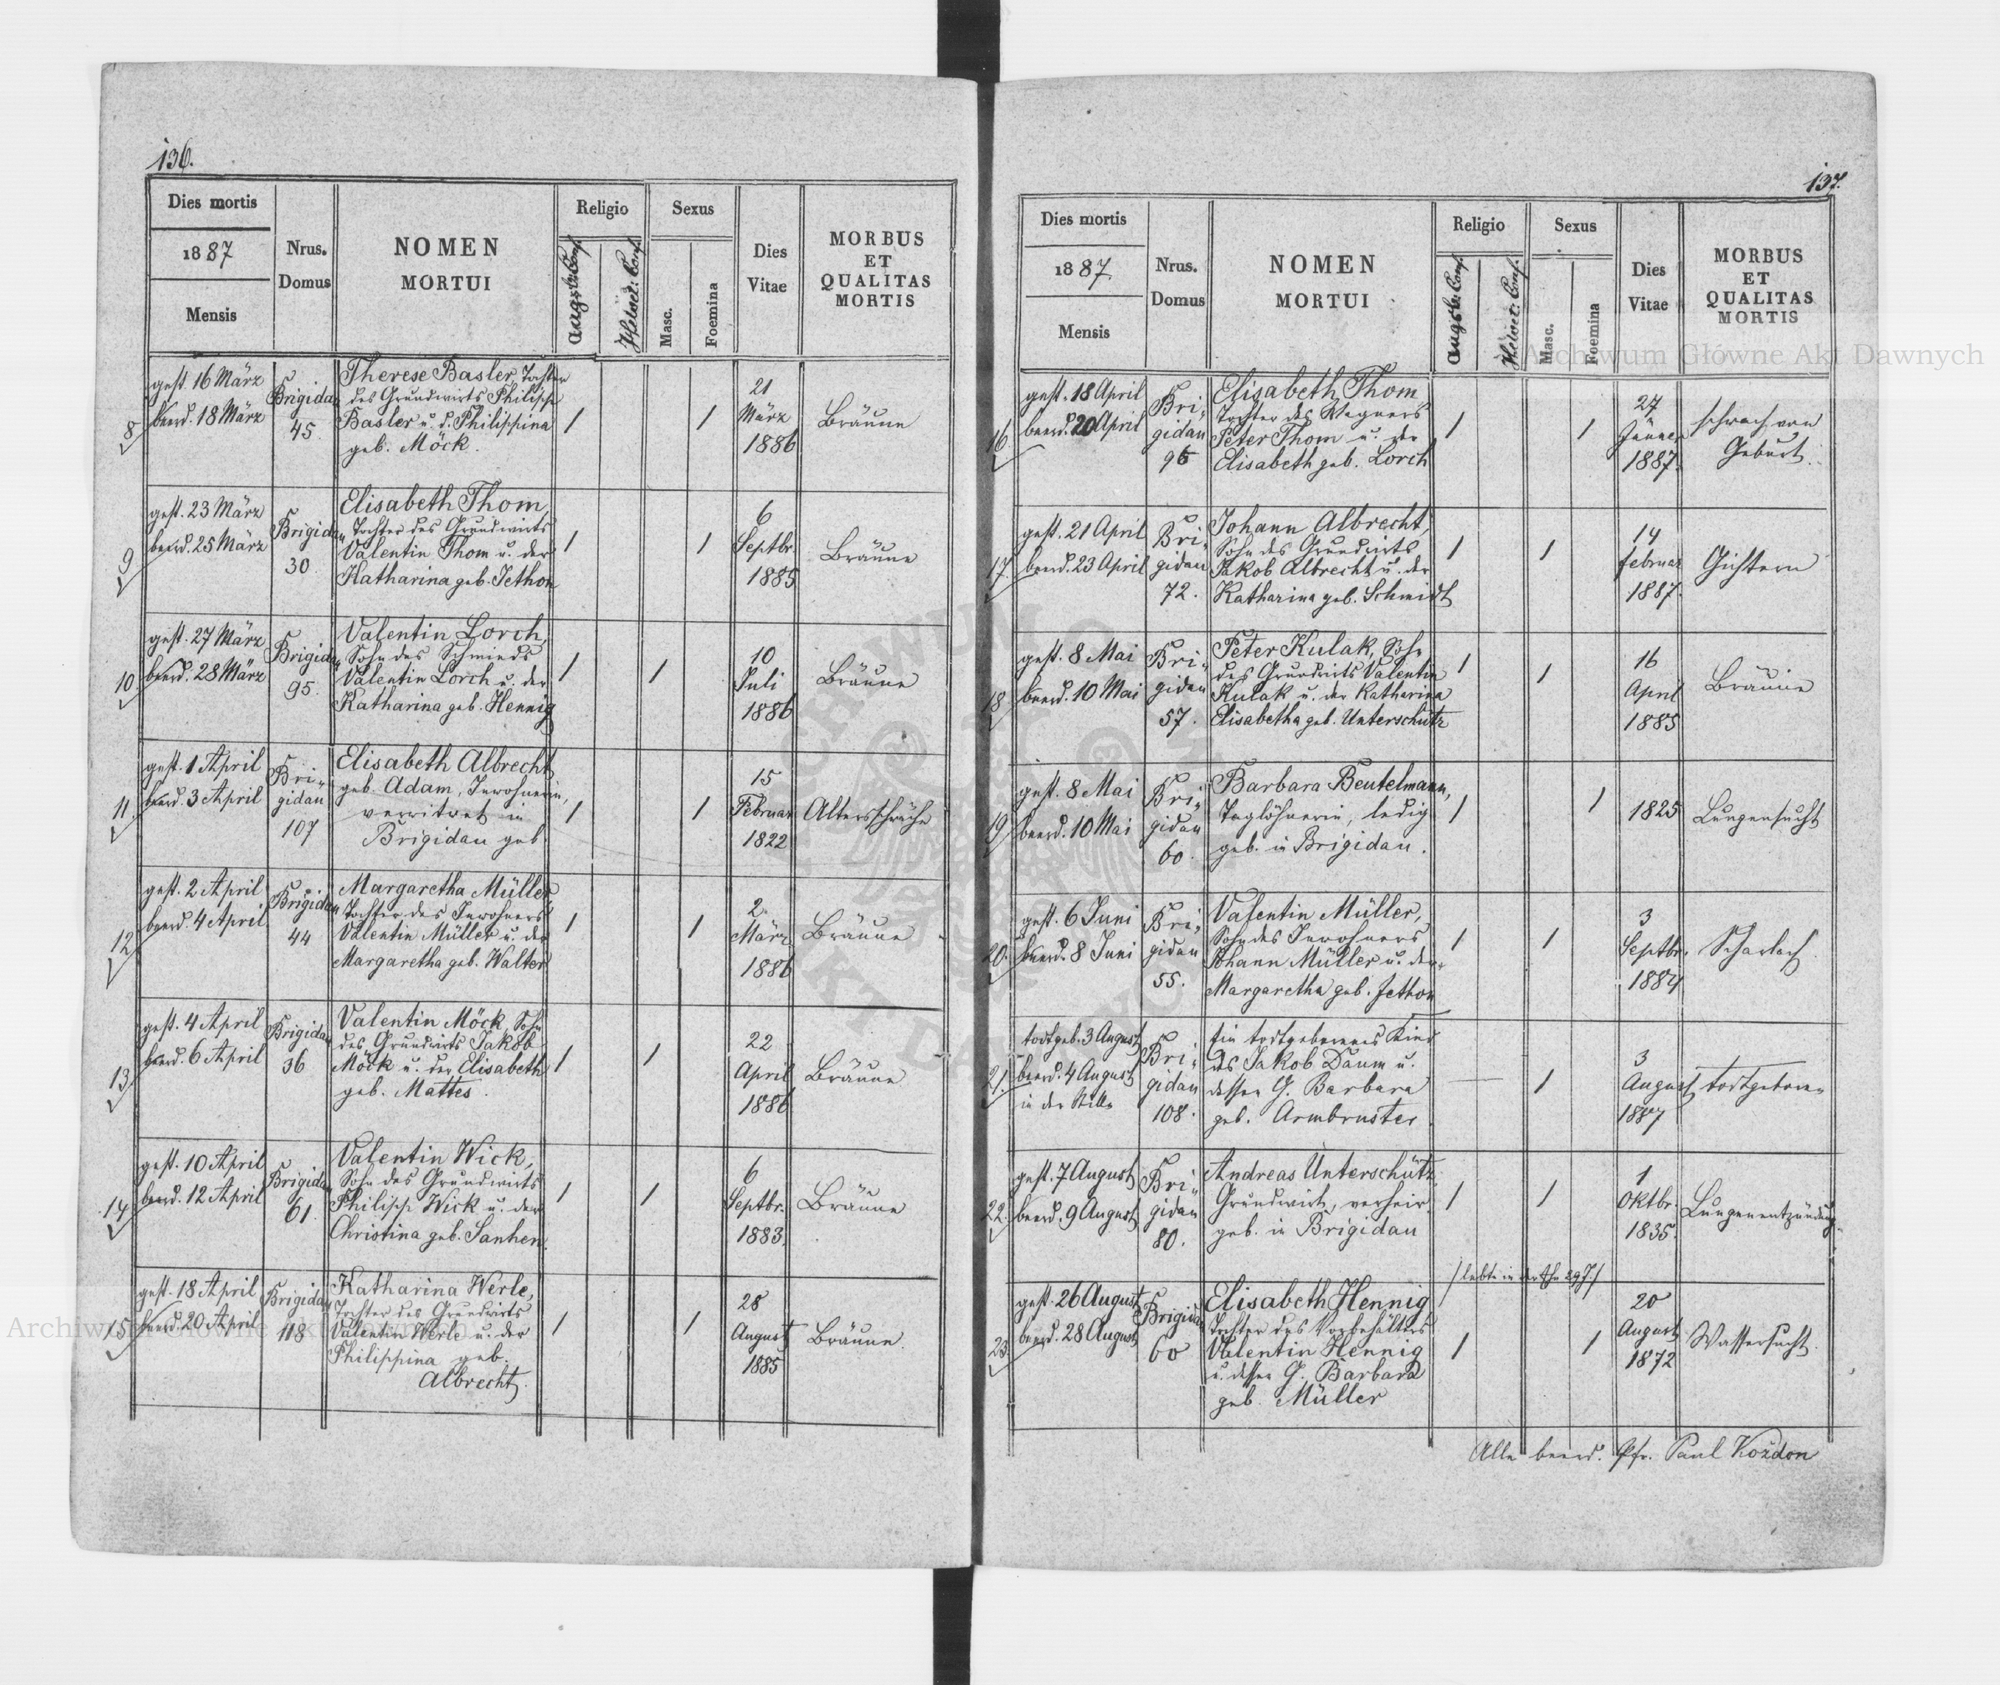 136.
Dies mortis
1887
Mensis
Nrus.
Domus
NOMEN
MORTUI
Religio
Augsb: Conf.
Helvet: Conf.
Sexus
Masc.
Foemina
Dies
Vitae
MORBUS
ET
QUALITAS
MORTIS
8
gest. 16 März
beerd. 18 März
Brigidau
45
Therese Basler, Tochter
des Grundwirts Philipp
Basler u. d. Philippina
geb. Möck.
1
1
21
März
1886
Bräune
9
gest. 23 März
beerd. 25 März
Brigidau
30
Elisabeth Thom,
Tochter des Grundwirts
Valentin Thom u. der
Katharina geb. Jethon
1
1
6
Septbr.
1885
Bräune
10
gest. 27 März
beerd. 28 März
Brigidau
95.
Valentin Lorch,
Sohn des Schmieds
Valentin Lorch u. der
Katharina geb. Hennig
1
1
10
Juli
1886
Bräune
11
gest. 1 April
beerd. 3 April
Bri-
gidau
107
Elisabeth Albrecht
geb. Adam, Inwohnerin,
verwitwet in
Brigidau geb.
1
1
15
Februar
1822
Altersschwäche
12
gest. 2 April
beerd. 4 April
Brigidau
44
Margaretha Müller,
Tochter des Inwohners
Valentin Müller u. der
Margaretha geb. Walter
1
1
2.
März
1886
Bräune
13
gest. 4 April
beerd. 6 April
Brigidau
36
Valentin Möck, Sohn
des Grundwirts Jakob
Möck u. der Elisabeth
geb. Mattes.
1
1
22
April
1886
Bräune
14
gest. 10 April
beerd. 12 April
Brigidau
61.
Valentin Wick,
Sohn des Grundwirts
Philipp Wick u. der
Christina geb. Sanhen.
1
1
6
Septbr.
1883.
Bräune
15
gest. 18 April
beerd. 20 April
Brigidau
118
Katharina Werle,
Tochter des Grundwirts
Valentin Werle u. der
Philippina geb.
Albrecht.
1
1
28
August
1885
Bräune.
137.
Dies mortis
1887.
Mensis
Nrus.
Domus
NOMEN
MORTUI
Religio
Augsb: Conf.
Helvet: Conf.
Sexus
Masc.
Foemina
Dies
Vitae
MORBUS
ET
QUALITAS
MORTIS
16
gest. 18 April
beerd. 20 April
Bri-
gidau
96
Elisabeth Thom
Tochter des Wagners
Peter Thom u. der
Elisabeth geb. Lorch
1
1
27
Jänner
1887.
schwach von
Geburt.
17.
gest. 21 April
beerd. 23 April
Bri-
gidau
72.
Johann Albrecht,
Sohn des Grundwirts
Jakob Albrecht u. der
Katharina geb. Schmidt
1
1
14
Februar
1887.
Gichtern
18
gest. 8 Mai
beerd. 10 Mai
Bri-
gidau
57.
Peter Kulak, Sohn
des Grundwirts Valentin
Kulak u. der Katharina
Elisabetha geb. Unterschütz
1
1
16
April
1885
Bräune
19
gest. 8 Mai
beerd. 10 Mai
Bri-
gidau
60.
Barbara Beutelmann,
Taglöhnerin, ledig
geb. in Brigidau.
1
1
1825
Lungensucht
20.
gest. 6 Juni
beerd. 8 Juni
Bri-
gidau
55.
Valentin Müller,
Sohn des Inwohners
Johann Müller u. der
Margaretha geb. Jethon
1
1
3
Septbr.
1884
Scharlach.
21.
todtgeb. 3 August
beerd. 4 August
in der Stille
Bri-
gidau
108.
Ein todtgeborenes Kind
des Jakob Daum u.
dessen G. Barbara
geb. Armbruster.
1
3
August
1887
todtgeboren
22.
gest. 7 August
beerd. 9 August
Bri-
gidau
80.
Andreas Unterschütz
Grundwirt, verheir.
geb. in Brigidau
1
1
1
Oktbr.
1835.
Lungenentzündung
/lebte in der Ehe 29 J./
23
gest. 26 August
beerd. 28 August
Brigidau
60
Elisabeth Hennig
Tochter des Vorbehälters
Valentin Hennig
u. dessen G. Barbara
geb. Müller
1
1
20
August
1872
Wassersucht.
Alle beerd. Pfr. Paul Kożdon
Archiwum Główne Akt Dawnych
Archiwum Główne Akt Dawnych